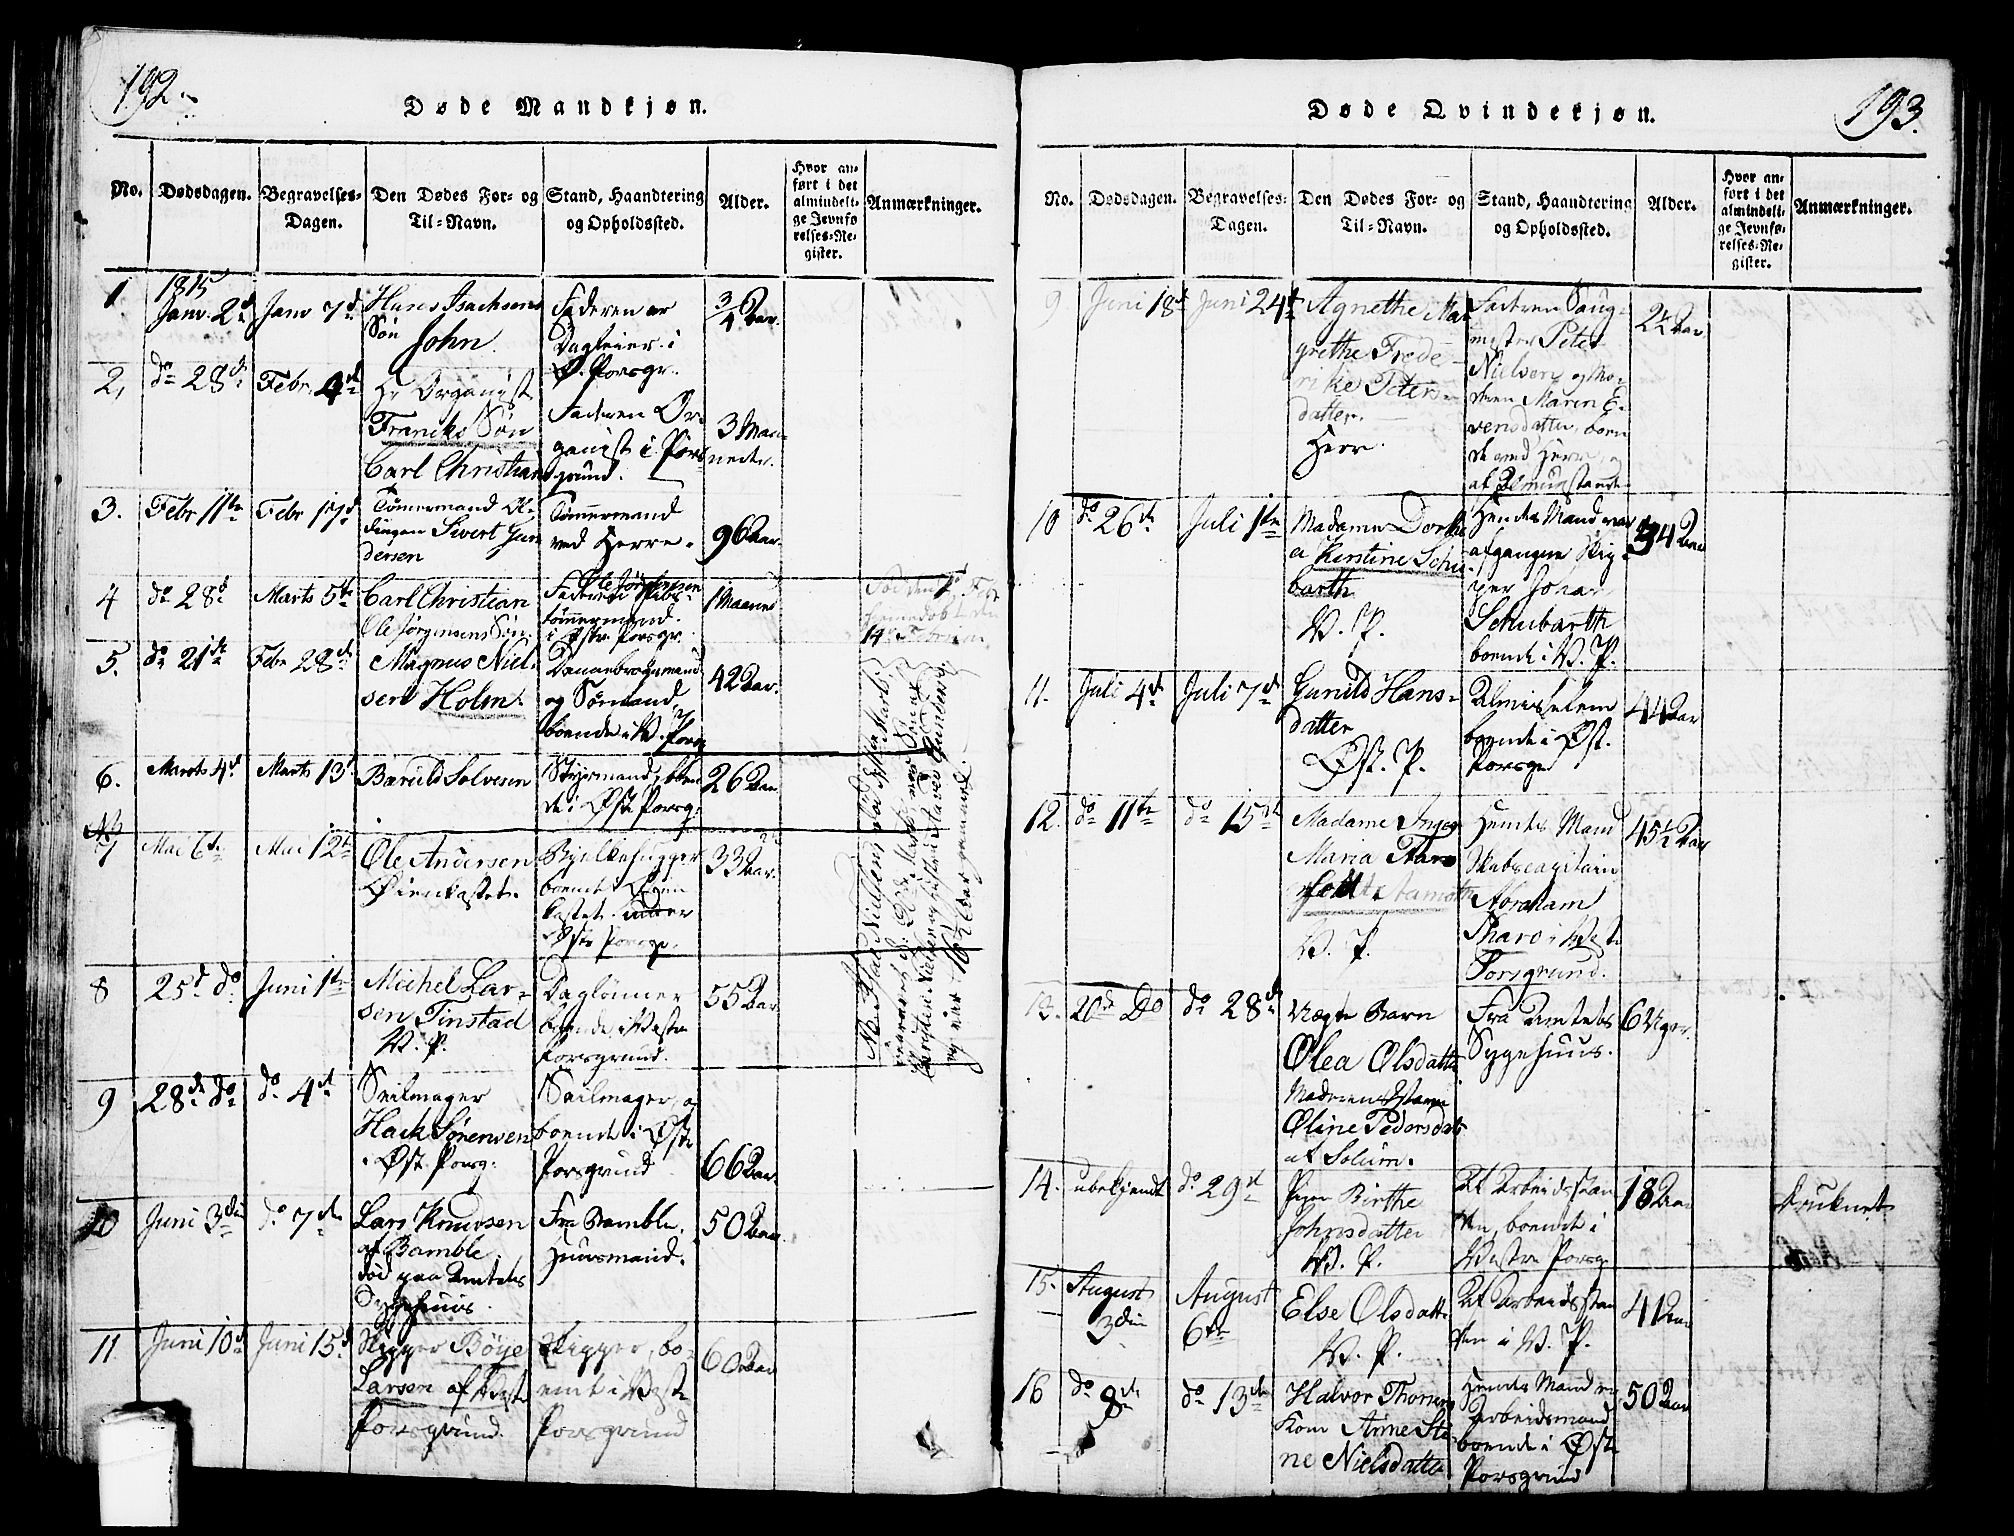 192.
Døde Mandkjøn.
No.
Dødsdagen.
Begravelses-
Dagen.
Den Dødes For- og
Til-Navn.
Stand, Haandtering
og Opholdssted.
Alder.
Hvor an-
ført i det
almindeli-
ge Jevnfø
relses-Re-
gister.
Anmærkninger.
1
1815
Janv. 2d
Janv 7d
Hans Isachsens
Søn
John.
Faderen er
Dagleier i
Ø. Porsgr.
3/4 Aar.
2,
do 28d
Febr. 4d
Hr Organist
Francks Søn
Carl Christian
Faderen Or-
ganist i Pors-
grund.
3 Maa-
neder.
3.
Febr 11te
Febr 17d
Tømmermand
Sivert Gun
dersen
Tømmermand
ved Herre.
96 Aar.
4
do 28d
Marts 5te
Carl Christian
Ole Jørgensens Søn.
Ole Jørgensen
Faderen Skibs-
tømmermand.
i Østr. Porsgr.
1 Maaned
14 Februar
5.
do 21de
Febr 28d
Magnus Niel-
sen Holm.
Dannebrogsmand
og Sømand,
boende i V. Porsg
42 Aar.
6.
Marts 4d
Marts 13d
Baruld Solvesen
Styrmand, boen
de i Øst Porsg.
26 Aar
7
Mai 6te
Mai 12te
Ole Andersen
Øienkastet.
Bjelkehugger
boende i Øien
kastet under
Østr Porsgr.
33 Aar.
8
25d do
Juni 1te
Michel Lar-
sen Tinstad
V. P.
Daglønner
boende i Vestre
Porsgrund.
55 Aar
9
28de do
do 4de
Seilmager
Hack Sørensen
Øst. Porsg.
Seilmager, og
boende i Østr
Porsgrund
66 Aar
10
Juni 3die
do 7de
Lars Knudsen
af Bamble.
død paa Amtets
Sygehuus.
Fra Bamble,
Huusmand.
50 Aar
11
Juni 10d
Juni 15d
Skipper Böye
Larsen af Vestr
Porsgrund.
Skipper, bo-
ende i Vestr
Porsgrund
60 Aar
193.
Døde Qvindekjøn.
No.
Dødsdagen.
Begravelses-
Dagen.
Den Dødes For- og
Til-Navn.
Stand, Haandtering
og Opholdssted.
Alder.
Hvor an-
ført i det
almindeli-
ge Jevnfø-
relses-Re-
gister.
Anmærkninger.
9
Juni 18de
Juni 24de
Agnethe Mar
grethe Frede-
rike Peters-
datter.
Herre.
Faderen Saug-
mester Peter
Nielsen, og Mo-
deren Maren E-
vensdatter, boen
de ved Herre, og
af Almuestanden
2½ Aar
10
do 26de
Juli 1te
Madame Dorthe
a Kirstine Schu-
barth
V. P.
Hendes Mand var
afgangne Skip-
per Jonas
Schubarth
boende i V. P.
34 Aar
11.
Juli 4de
Juli 7de
Gunild Hans-
datter
Øst. P.
Almisselem
boende i Øst.
Porsgr.
44 Aar
12.
do 11te
do 15de
Madame Inger
Maria Tharo
V. P.
Hendes Mand
Skibscapitain
Abraham
Tharo i Vestr
Porsgrund.
45½ Aar
13.
20de Do
do 28de
Ægte Barn
Ølea Olsdatter
Moderens Navn
Øline Pedersdatr
af Solum.
Fra Amtets
Sygehuus.
6 Uger.
14.
ubekjendt
do 29d
Pigen Birthe
Johnsdatter
V. P.
Af Arbeidsstan
den, boende i
Vestre Porsg.
18 Aar
druknet
15.
August
3die
August
6te
Else Olsdattr
V. P.
Af Arbeidsstan
den i V. P.
41 Aar
16
do 8de
do 13de
Halvor Thorsens
Kone Anne Sti-
ne Nielsdatter
Hendes Mand er
Arbeidsmand
boende i Østr
Porsgrund
50 Aar